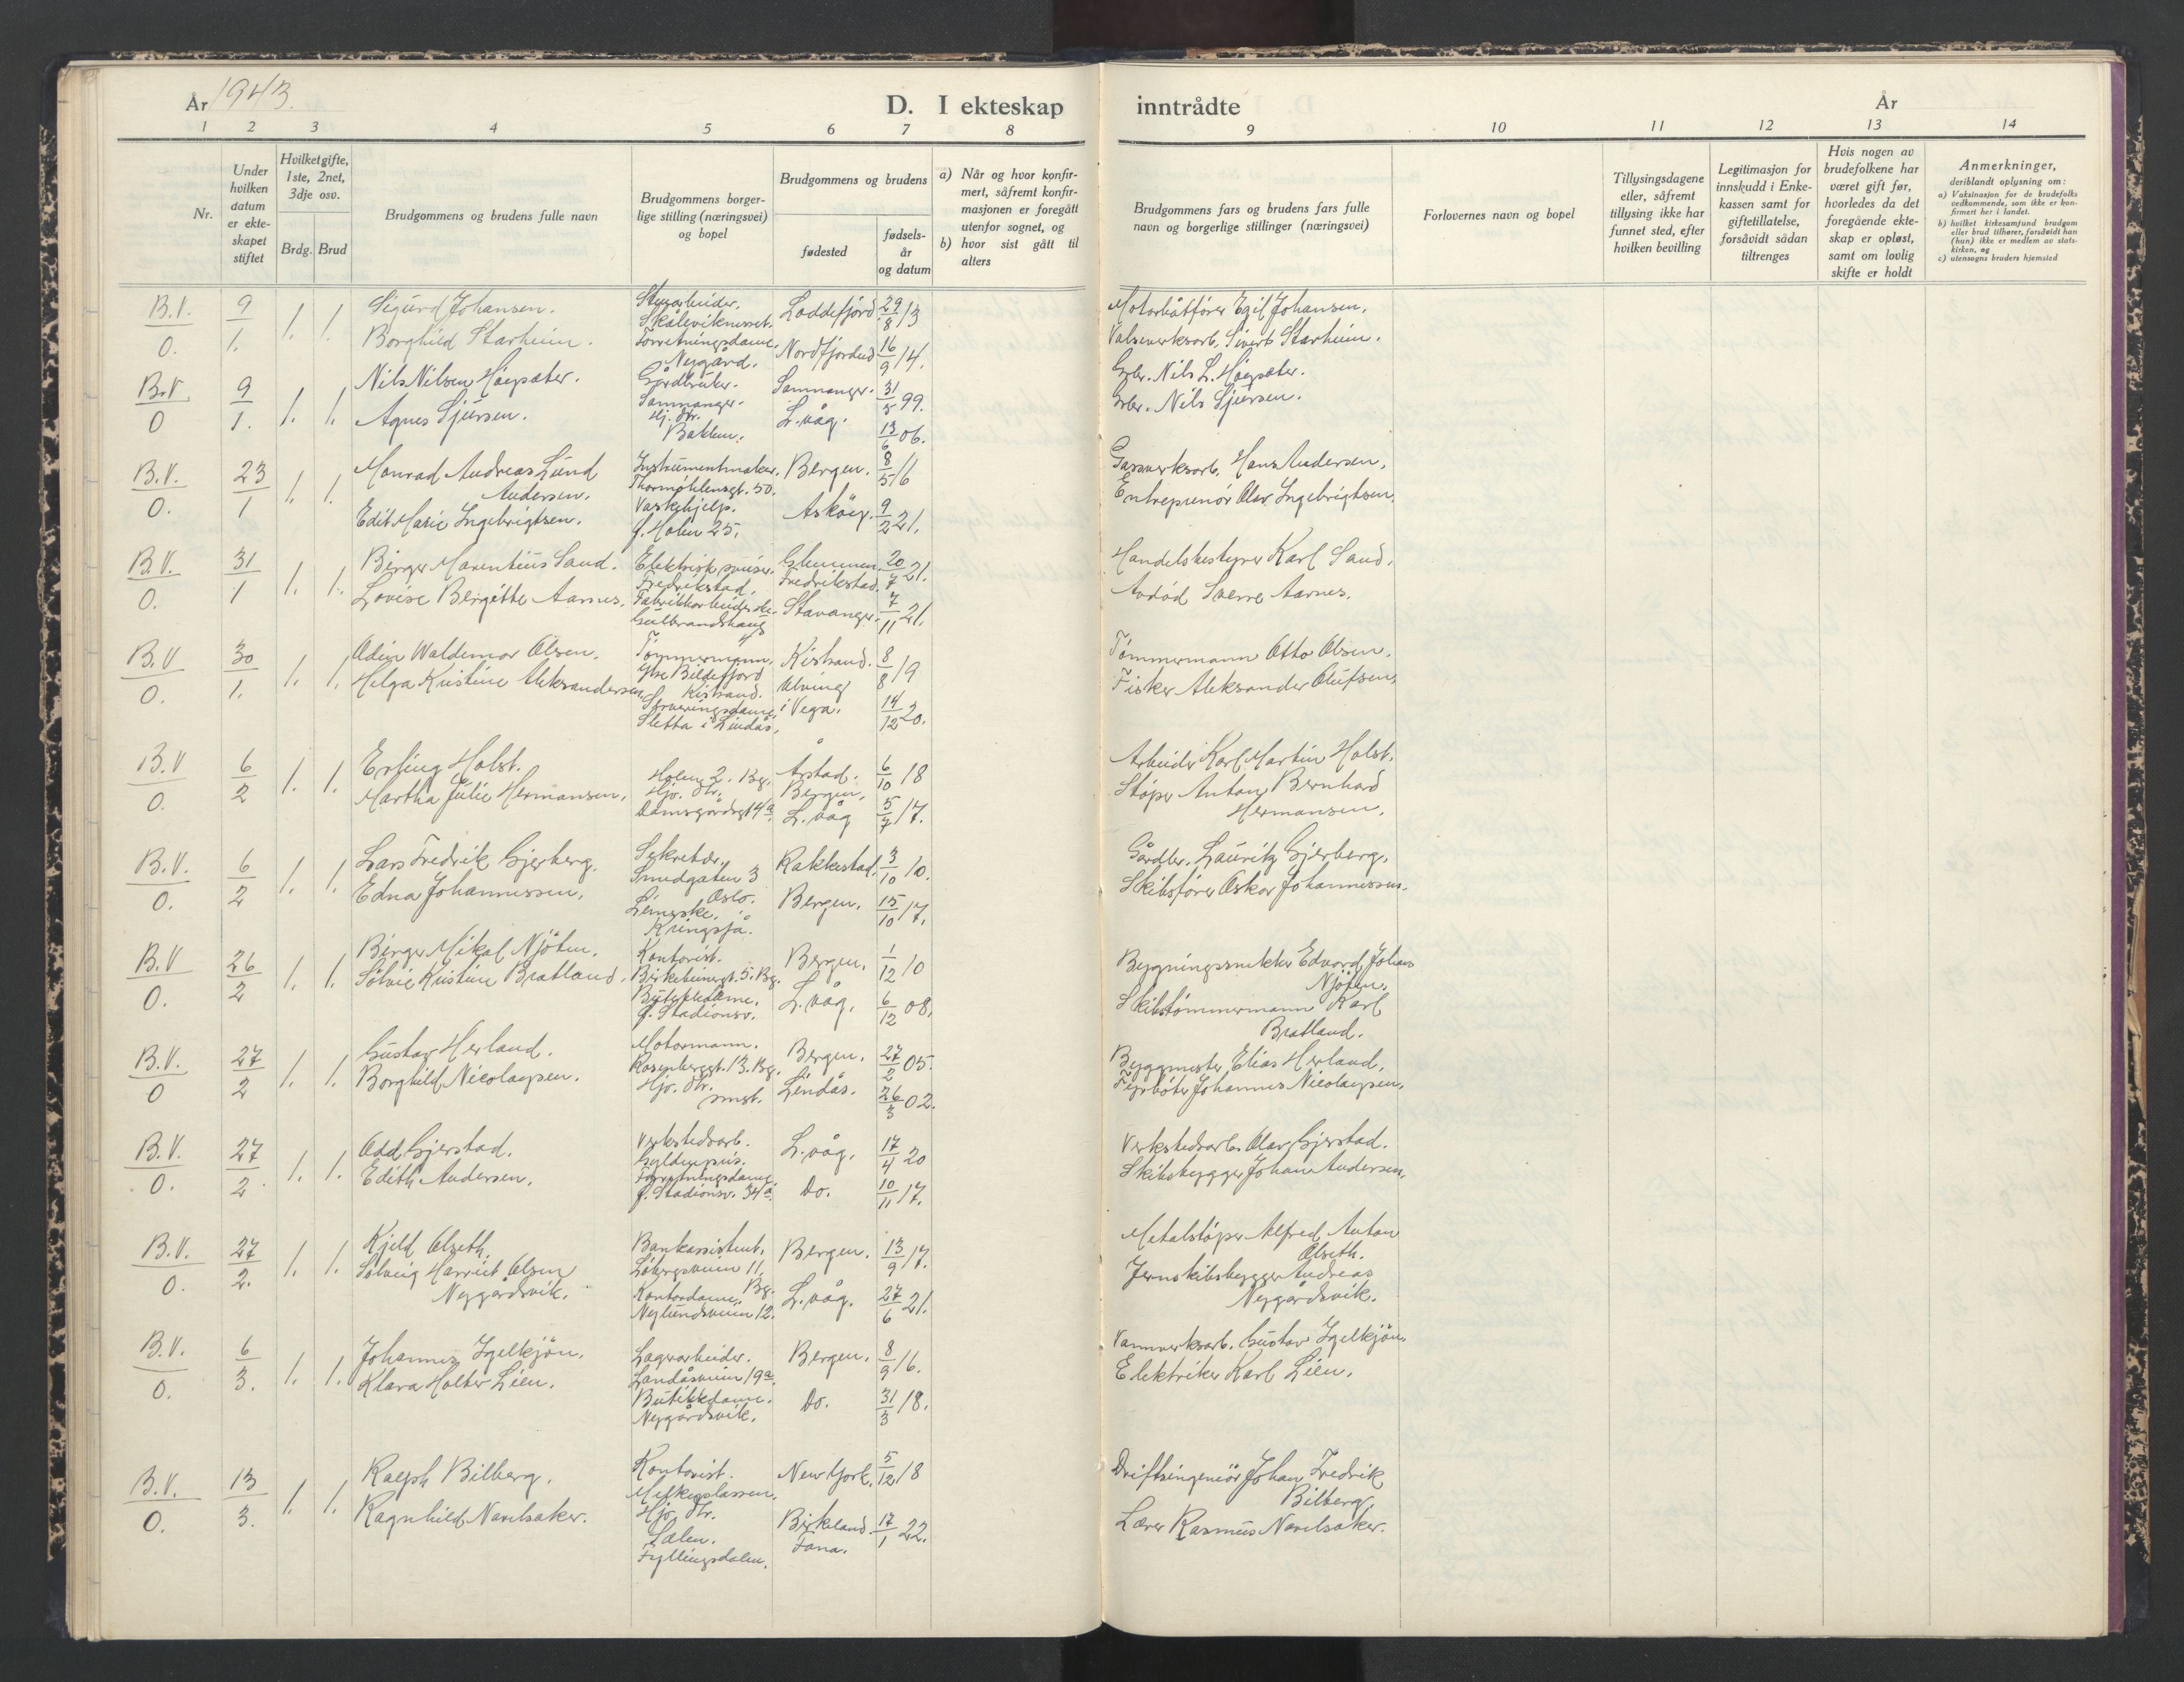 År 1943.
D. I ekteskap inntrådte
År
1 2 3 4 5 6 7 8 9 10 11 12 13 14
Nr.
Under hvilken datum er ekteskapet stiftet
Hvilket gifte, 1ste, 2net, 3dje osv.
Brdg. Brud
Brudgommens og brudens fulle navn
Brudgommens borgerlige stilling (næringsvei) og bopel
Brudgommens og brudens
fødested
fødselsår og datum
a) Når og hvor konfirmert, såfremt konfirmasjonen er foregått utenfor sognet, og
b) hvor sist gått til alters
Brudgommens fars og brudens fars fulle navn og borgerlige stillinger (næringsvei)
Forlovernes navn og bopel
Tillysingsdagene eller, såfremt tillysing ikke har funnet sted, efter hvilken bevilling
Legitimasjon for innskudd i Enkekassen samt for giftetillatelse, forsåvidt sådan tiltrenges
Hvis nogen av brudefolkene har været gift før, hvorledes da det foregående ekteskap er opløst, samt om lovlig skifte er holdt
Anmerkninger,
deriblandt oplysning om:
a) Vaksinasjon for de brudefolks vedkommende, som ikke er konfirmert her i landet.
b) hvilket kirkesamfund brudgom eller brud tilhører, forsåvidt han (hun) ikke er medlem av statskirken, og
c) utensogns bruders hjemsted
B.V. 9 1. 1. Sigurd Johansen. Loddefjord 29/8 13 Motorbåtfører Egil Johansen.
0. 1. Borghild Starheim. Forretningsdame. Nygård. Nordfjordeid 16/9 14. Valseverksarb. Sivert Starheim.
B.V. 9 1. 1. Nils Nilsen Høysæter. Gårdbruker. Samnanger. Samnanger. 31/ 99. Gbr. Nils L. Høysæter.
0 1. Agnes Sjursen. Hj. dtr. Bakken. L.våg. 13/6 06. Gbr. Nils Sjursen.
B.V. 23 1. 1. Monrad Andreas Lund Andersen. Instrumentmaker. Thormøhlensgt. 50. Bergen. 8/5 16 Gassverksarb. Hans Andersen.
0. 1 Edit Marie Ingebrigtsen. Vaskehjelp. g. Holen 25. Askøy. 9/2 21. Entreprenør Olav Ingebrigtsen.
B.V. 31 1. 1. Birger Marentius Sand. Fredrikstad. Glemmen. Fredrikstad. 20/7 21. Handelsbestyrer Karl Sand.
0. 1 Lovise Bergitte Aarnes. Fabrikkarbeiderske. Gulbrandshaug Stavanger. 7/11 21. Avdød Sverre Aarnes.
B.V 30 1. 1. Odin Waldemar Olsen. Tømmermann. Ytre Billefjord Kistrand. Kistrand. 8/8 19 Tømmermann Otto Olsen.
0. 1. Helga Kristine Aleksandersen. Serveringsdame. Sletta i Lindås. i Vega. 14/12 20. Fisker Aleksander Olufsen.
B.V 6 1. 1. Erling Holst. Holen 2. Bg. Årstad. Bergen. 6/10 18 Arbeider Karl Martin Holst.
0. 2 Martha Julie Hermansen. Hjv. dtr. Damsgårdsgt 14a L.våg 5/7 17. Støper Anton Bernhard Hermansen.
B.V. 6 1. 1. Lars Fredrik Gjerberg. Sekretær. Smedgaten 3 Oslo. Rakkestad. 3/10 10. Gårdbr. Lauritz Gjerberg.
0. 2 Edna Johannessen. Kringsjå. Bergen. 15/10 17. Skibsfører Oskar Johannessen.
B.V 26 1. 1. Birger Mikal Njøten. Kontorist. Birkebeinergt. 5. Bg. Bergen. 1/12 10 Bygningssnekker Edvard Johan Njøten.
0. 2 Solvei Kristine Bratland. Butikkdame. g. Stadionsv. L.våg. 6/12 08. Skibstømmermann Karl Bratland.
B.V. 27 1. 1. Gustav Herland. Motormann. Rosenberggt. 13. Bg. Bergen. 27/2 05. Byggmester Elias Herland.
0 2 Borghild Nicolaysen. Hjv. dtr. smst. Lindås. 26/3 02. Fyrbøter Johannes Nicolaysen.
B.V. 27 1. 1. Odd Gjerstad. Verkstedsarb. L.våg. 17/4 20 Verkstedsarb. Olav Gjerstad.
0. 2. Edith Andersen. Forretningsdame. g. Stadionsv. 34a. Do. 10/11 17. Skibsbygger Johan Andersen.
B.V. 27 1. 1. Kjell Olseth. Bankassistent. Løbergsveien 11. Bg. Bergen. 13/9 17. Metalstøper Alfred Anton Olseth.
0. 2. Solveig Harriet Olsen Nygårdsvik. Kontordame. Nylundsveien 12. L.våg. 27/6 21. Jernskibsbygger Andreas Nygårdsvik.
B.V. 6 1. 1. Johannes Igelkjøn. Lagerarbeider. Landåsveien 19a. Bergen. 8/9 16. Vannverksarb. Gustav Igelkjøn.
0. 3. Klara Holter Lien. Butikkdame. Nygårdsvik. Do. 31/3 18. Elektriker Karl Lien.
B.V. 13 1. 1. Ralph Bilberg. Kontorist. Melkeplassen. New York. 5/12 18 Driftsingeniør Johan Fredrik Bilberg.
0. 3. Ragnhild Navelsaker. Hjv. dtr. Fyllingsdalen. Birkeland Fana. 17/1 22. Lærer Rasmus Navelsaker.